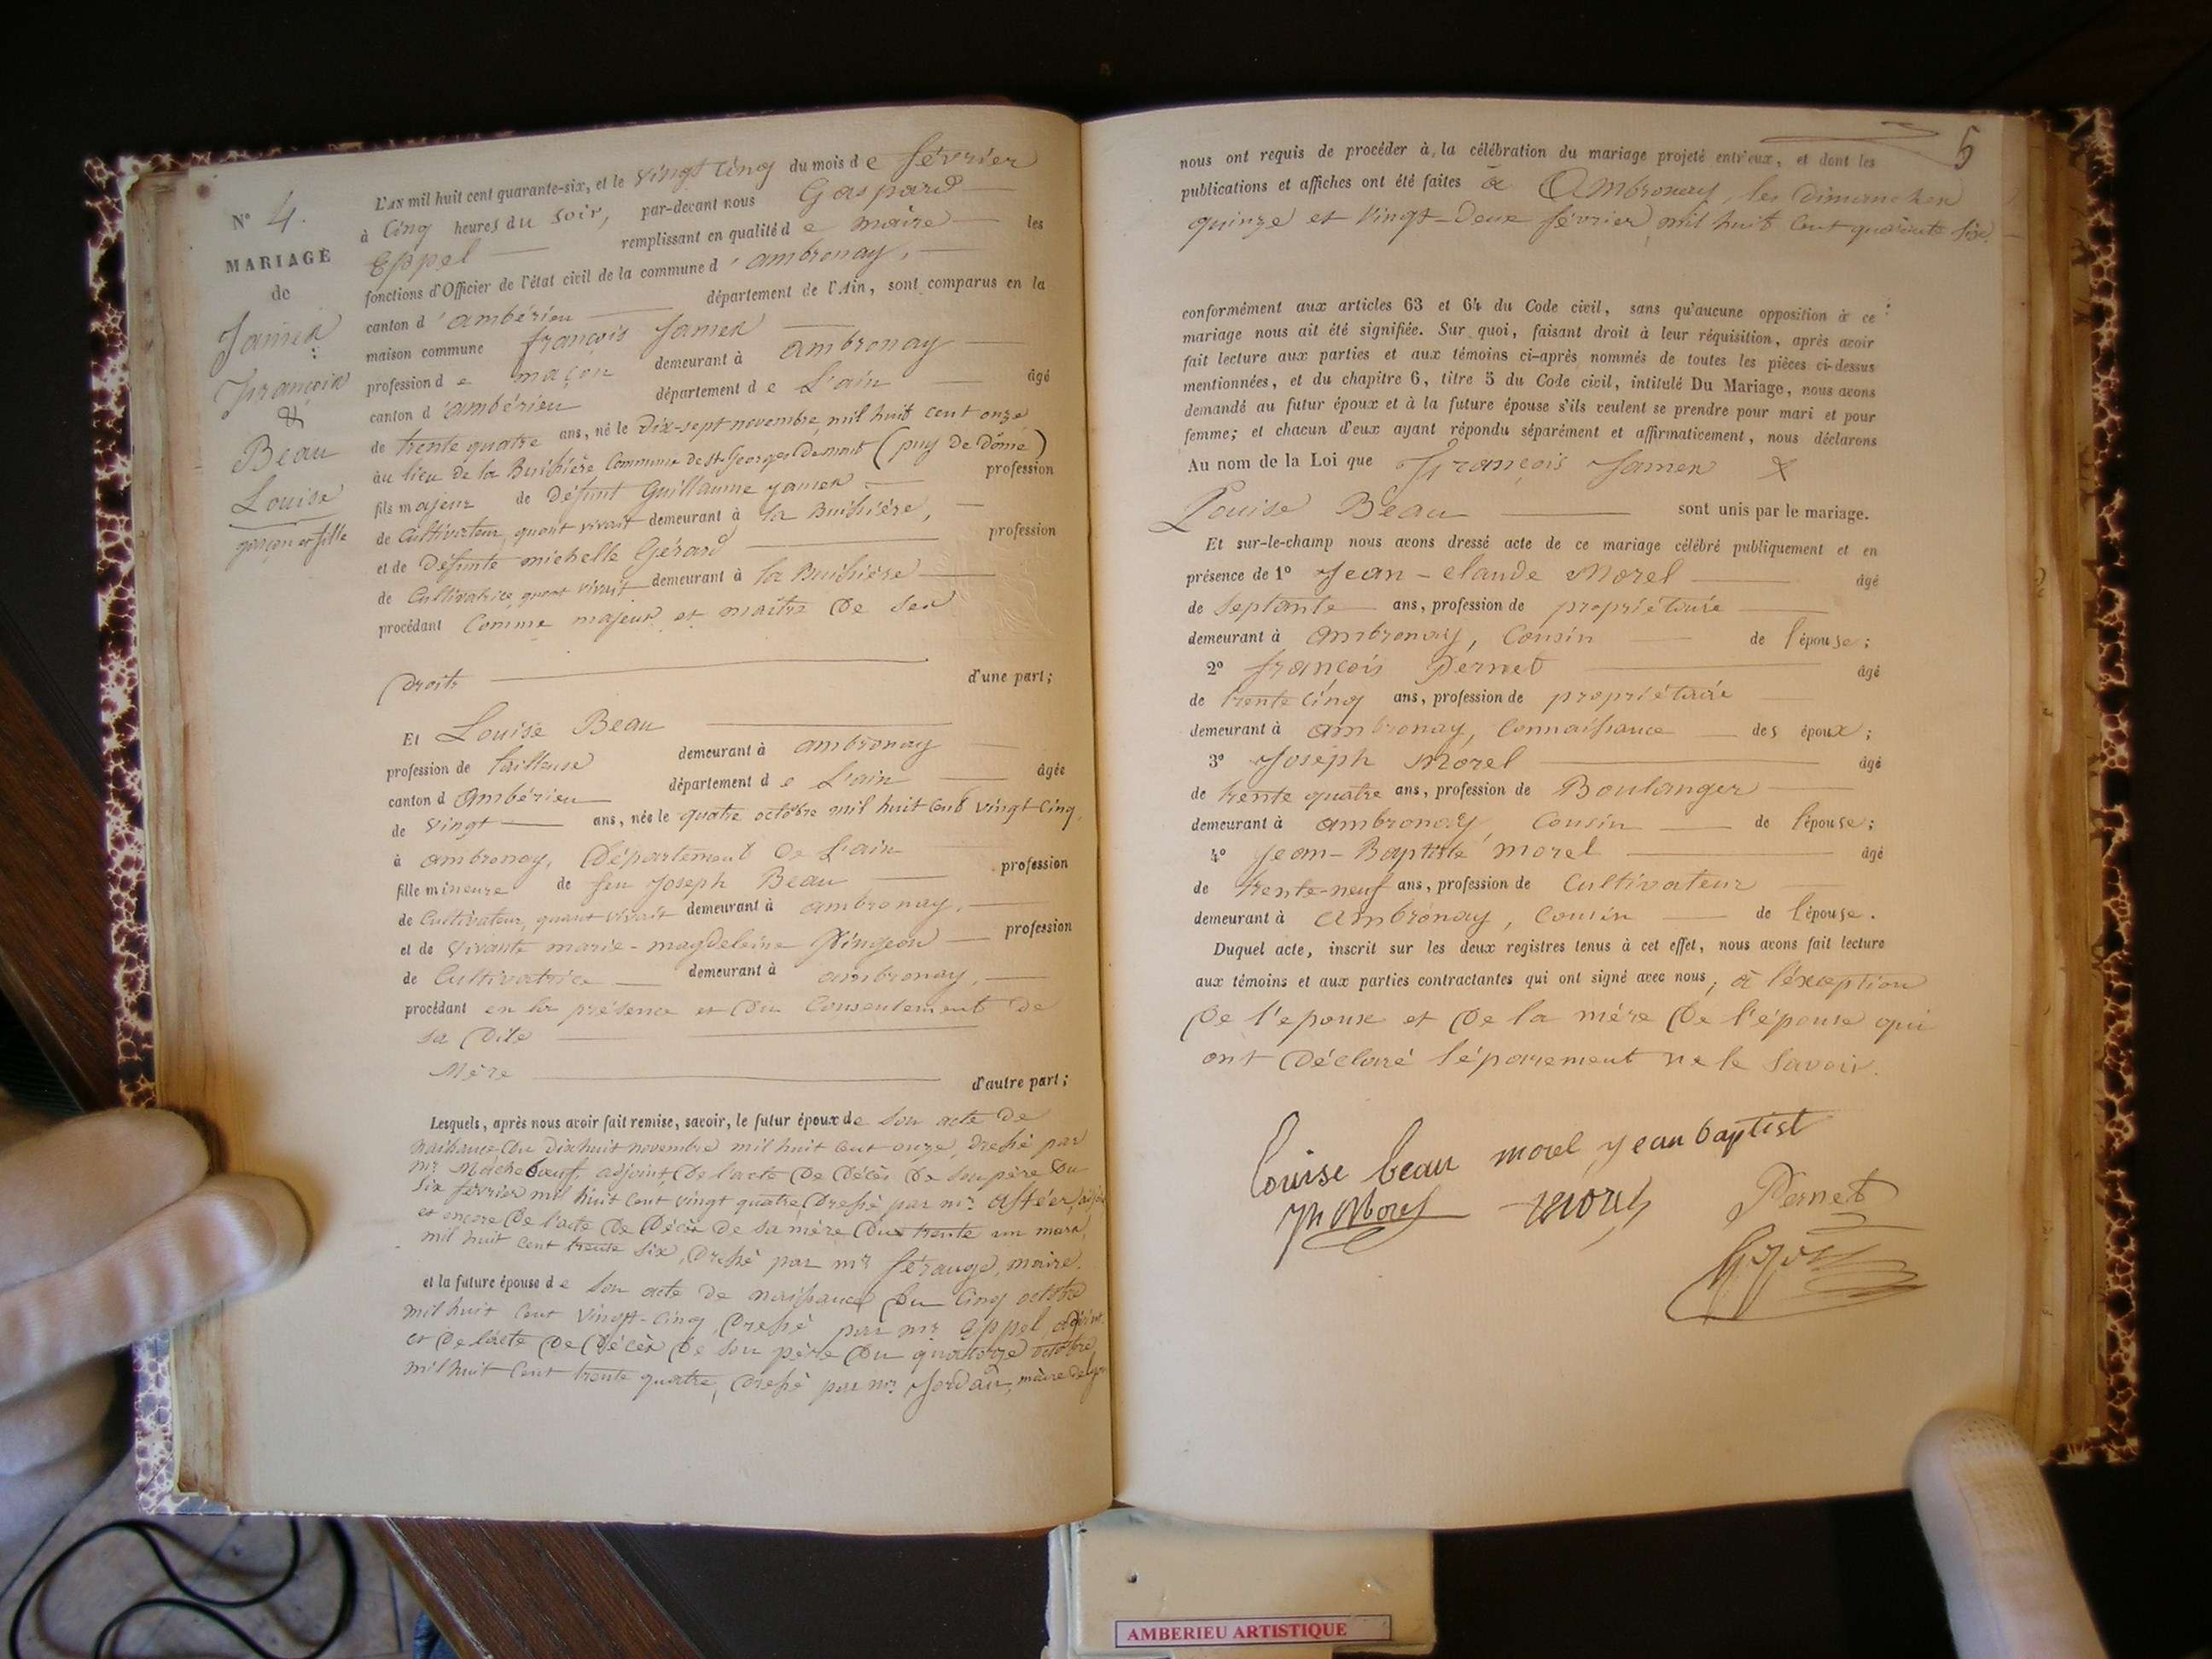 N° 4.
MARIAGE
de
Jamen
François
&
Beau
Louise
garçon et fille
L'AN mil huit cent quarante-six, et le vingt cinq du mois de février
à cinq heures du soir, par-devant nous Gaspard
Eppel remplissant en qualité de maire les
fonctions d'Officier de l'état civil de la commune d'ambronay,
canton d'ambérieu département de l'Ain, sont comparus en la
maison commune françois Jamen
profession de maçon demeurant à ambronay
canton d'ambérieu département de L'ain âgé
de trente quatre ans, né le dix-sept novembre mil huit cent onze
au lieu de la Buissière Commune de st Georges de mont (puy de Dôme)
fils majeur de défunt Guillaume Jamen profession
de Cultivateur, quant vivait demeurant à la Buissière,
et de défunte michelle Gérard profession
de Cultivatrice, quant vivait demeurant à la Buissière
procédant Comme majeur et maître de ses
droits d'une part;
Et Louise Beau
profession de tailleuse demeurant à ambronay
canton d'ambérieu département de L'ain âgée
de vingt ans, née le quatre octobre mil huit cent vingt-cinq,
à ambronay, Département de L'ain
fille mineure de feu Joseph Beau profession
de Cultivateur, quant vivait demeurant à ambronay,
et de vivante marie-magdeleine Pingeon profession
de Cultivatrice demeurant à ambronay,
procédant en la présence et du Consentement de
sa dite
Mère d'autre part;
Lesquels, après nous avoir fait remise, savoir, le futur époux de son acte de
naissance du dixhuit novembre mil huit cent onze, dressé par
mr Machebœuf, adjoint, de l'acte de décès de son père du
six février mil huit cent vingt quatre dressé par mr
et encore de l'acte de Décès de sa mère du trente un mars,
mil huit cent trente six, dressé par mr férauge, maire.
et la future épouse de son acte de naissance du cinq octobre
mil huit cent vingt-cinq, dressé par mr Eppel, adjoint.
et de l'acte de Décès de son père du quatorze octobre
mil huit cent trente quatre, dressé par mr Jordan, maire de
5
nous ont requis de procéder à la célébration du mariage projeté entr'eux, et dont les
publications et affiches ont été faites à Ambronay, les dimanches
quinze et vingt-deux février mil huit cent quarante six.
conformément aux articles 63 et 64 du Code civil, sans qu'aucune opposition à ce
mariage nous ait été signifiée. Sur quoi, faisant droit à leur réquisition, après avoir
fait lecture aux parties et aux témoins ci-après nommés de toutes les pièces ci-dessus
mentionnées, et du chapitre 6, titre 5 du Code civil, intitulé Du Mariage, nous avons
demandé au futur époux et à la future épouse s'ils veulent se prendre pour mari et pour
femme; et chacun d'eux ayant répondu séparément et affirmativement, nous déclarons
Au nom de la Loi que François Jamen &
Louise Beau sont unis par le mariage.
Et sur-le-champ nous avons dressé acte de ce mariage célébré publiquement et en
présence de 1° Jean-claude Morel âgé
de septante ans, profession de propriétaire
demeurant à ambronay, Cousin de l'épouse;
2° françois Pernet âgé
de trente cinq ans, profession de propriétaire
demeurant à ambronay, Connaissance des époux;
3° Joseph Morel âgé
de trente quatre ans, profession de Boulanger
demeurant à ambronay, Cousin de l'épouse;
4° Jean-Baptiste morel âgé
de trente-neuf ans, profession de Cultivateur
demeurant à Ambronay, Cousin de l'épouse.
Duquel acte, inscrit sur les deux registres tenus à cet effet, nous avons fait lecture
aux témoins et aux parties contractantes qui ont signé avec nous, à l'éxception
de l'epoux et de la mère de l'épouse qui
ont déclaré séparement ne le savoir.
Louise beau morel jean baptist
Jh Morel morel Pernet
AMBERIEU ARTISTIQUE